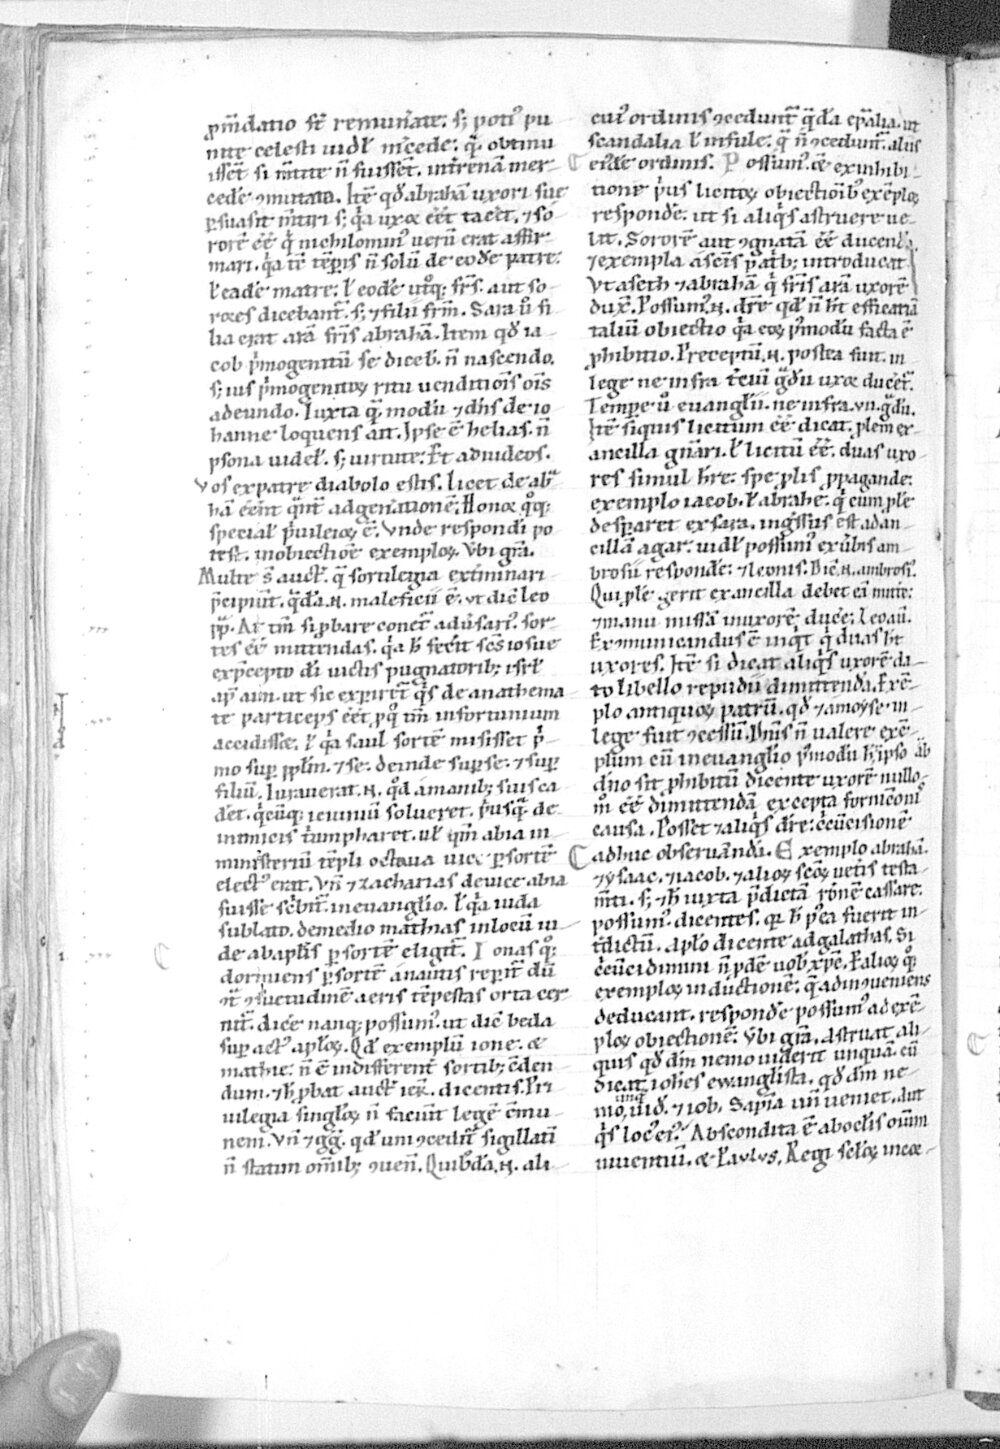 ꝓmdatio st̄ remun̄ate. s; poti᷒ pu
nite celesti uidel̄ m̄cede. q̄ obtinu
isset si m̄tite n̄ fuissēt. in t̄renam̄ mer
cede ꝯmutata. Itē qd̄ abrahā uxori sue
ꝑsuasit m̄tiri s; q̄a uxorē eēt tacēt. ⁊ so
rorē eē q̄ nichilomin᷒ uerū erat affir
mari. q̄a tē tēꝑis n̄ solū de eodē patre.
ł eadē matre. ł eodē utꝛoq; frs̄. aut so
rores dicebant̄. s; ⁊ filii frm̄. Sara ū fi
lia erat arā fr̄is abrahā. Item qd̄ ia
cob p̄mogenitū se diceb̄. n̄ nascendo.
s; ius p̄mogenitoꝝ ritu uenditiōis oīs
adeundo. Iuxta q̄ modū ⁊ dn̄s de io
hanne loquens aīt. Ipse ē helias. n̄
ꝑsona uidel̄. s; uirtute. Et ad iudeos.
Vos ex patre diabolo estis. licet de ab̄
hā eēnt q̄nt̄ ad generationē. Honor q̄q;
special̄ p̄uileioꝝ ē. Vnde responderi po
test. in obiectiōe exemploꝝ. V̄bi gr̄a.
Multe s̄ auct̄. q̄ sortilegia ext̄minari
p̄cipiūt. q̄da. n. maleficii ē. ut dic̄ leo
pp̄. At tm̄ si ꝓbare conet̄ aduersari᷒. sor
tes eē mittendas. q̄a h̄ fecit scs̄ iosue
ex p̄cepto dī uictis pugnatorib; isrł
ap̄ ain. ut sic exꝑiret̄ q̄s de anathema
te particeps eēt ꝑ q̄ tm̄ infortunium
accidisset. ł q̄a saul sortē misisset p̄
mo suꝑ pp̄lm̄. ⁊ se. deinde suꝑ se. ⁊ suꝑ
filiū. Iurauerat. n. qd̄ a manib; suis ca
det. q̄cūq; ieiuniū solueret. p̄usq̄ de
inimicis t̄umpharet. uł qm̄ abia in
ministeriū tēpli octaua uice ꝑ sortē
elect᷒ erat. Vn̄ ⁊ zacharias de uice abia
fuisse sc̄bit̄. in euanglio. ł q̄a iuda
sublato. de medio mathias in locū iu
de ab aplis ꝑ sortē eligit̄. Ionas q̄;
dormiens ꝑ sortē a nautis reꝑit̄ dū
ꝯt̄ ꝯsuetudinē aeris tēpestas orta cer
nit̄. dicē nanq; possum᷒. ut dic̄ beda
suꝑ act᷒ aploꝝ. Qd̄ exemplū ione. ⁊
mathie. n̄ ē indifferent̄ sortib; c̄den
dum. ⁊ h̄ ꝓbat auct̄ ier̄. dicentis. Pri
uilegia singloꝝ n̄ faciūt legē c̄mu
nem. Vn̄ ⁊ gḡ. qd̄ uni ꝯcedit̄ sigillati
n̄ statim omīb; ꝯuen̄. Quibd̄a. n. ali
cui᷒ ordinis ꝯcedunt̄ q̄da sp̄alia. ut
scandalia ł infule. q̄ n̄ ꝯcedunt̄. aliis
eidē ordinis. Possum᷒. ⁊ ex inhibi
tione p̄us licitoꝝ obiectiōib᷒ exēploꝝ
respondē. ut si aliq̄s astruere ue
lit. Sororē aut ꝯgnatā eē ducendā.
⁊ exempla a scis̄ p̄atb; introducat
Vt a seth ⁊ abrahā q̄ fris̄ arā uxorē
duxt̄. Possum᷒. n. dr̄e qd̄ n̄ ht̄ efficatiā
taliū obiectio q̄a eoꝝ p̄ modū facta ē
ꝓhibitio. Preceptū. n. postea fuit. in
lege ne infra t̄ciū g̃dū uxor̄ ducet̄.
Tempore ū euangliī. ne infra. vii. g̃dū.
Itē siquis licitum eē dicat. ꝓlem ex
ancilla gn̄ari. ł licitū eē. duas uxo
res simul h̄re. spe ꝓlis ꝓpagande.
exemplo iacob. ł abrahe. q̄ cum ꝓle
desꝑaret ex sara. ingressus est ad an
cillā agar. uidł possum᷒ ex ūbis am
brosii respondē. ⁊ leonis. Dic̄. n. ambrosi᷒.
Qui ꝓle gerit ex ancilla debet eā mitte.
⁊ manu missā in uxorē duce. Leo aū.
Excōmunicandus ē inq̄t q̄ duas ht̄
uxores. Itē si dicat aliq̄s uxorē da
to libello repudii dimittendā. Exē
plo antiquoꝝ patrū. qd̄ ⁊ a moyse in
lege fuit ꝯcessū. Dicim᷒ n̄ ualere exē
plum cū in euanglio p̄ modū h̄ ipso
dn̄o sit ꝓhibitū dicente uxorē nullo
m̊ eē dimittendā excepta fornicōnis
causa. Posset ⁊ aliq̄s dr̄e. c̄cūcisionē
adhuc obseruandā. Exemplo abrahā.
⁊ ysaac. ⁊ iacob. ⁊ alioꝝ scōꝝ uet̄is testa
mti. s; ⁊ h̄ iuxta p̄dictā rōnē cassare.
possum᷒. dicentes. qr h̄ p᷒ea fuerit in
t̄dictū. aplo dicente ad galathas. Si
c̄cūcidimini n̄ ꝓdē uob̄ xp̄c. Et alioꝝ q̄;
exemploꝝ inductionē. q̄ ad incōueniens
deducant. respondē possum᷒ ad exē
ploꝝ obiectionē. V̄bi gr̄a. Astruat ali
quis qd̄ dm̄ nemo uiderit unquā. cū
dicat iohes ewanglista. qd̄ dm̄ ne
mo unq̄ uid̄. ⁊ iob. Sapīa un̄ ueniet. Aut
q̄s loc᷒ ei᷒. Abscondita ē ab oclis oīum
uiuentiū. ⁊ Paulus. Regi scloꝝ inmor